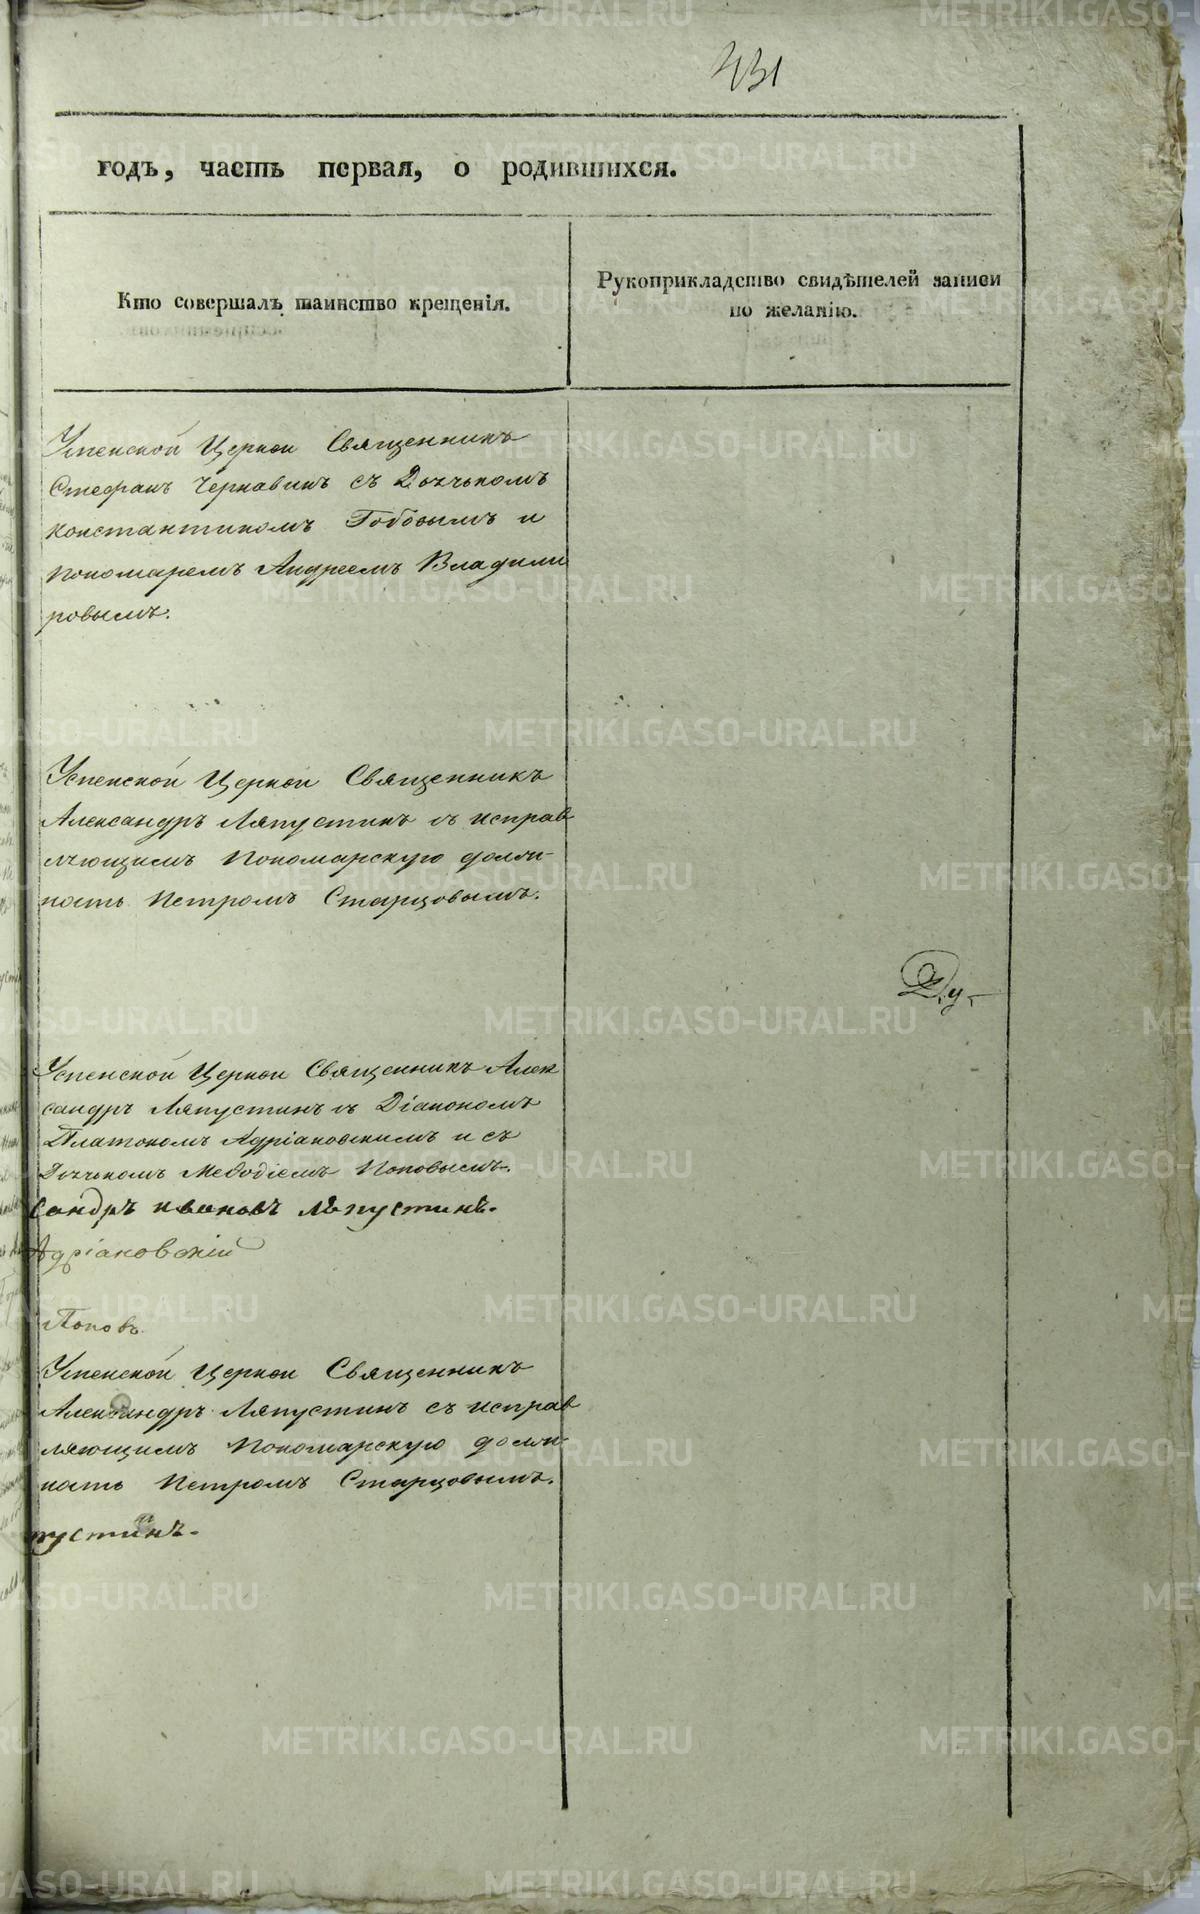 431
годъ, часть первая, о родившихся.
Кто совершалъ таинство крещенія.
Рукоприкладство свидѣтелей записи
по желанію.
Успенской Церкви Священникъ
Стефанъ Чернавинъ съ Дьячькомъ
Константиномъ Гобовымъ и
Пономаремъ Андреемъ Владими
ровымъ.
Успенской Церкви Священникъ
Александръ Ляпустинъ съ исправ
ляющимъ Пономарскую долж-
ность Петромъ Старцовымъ.
Ду-
Успенской Церкви Священникъ Алек
сандръ Ляпустинъ съ Діакономъ
Платономъ Адріановскимъ и съ
Дьячькомъ Меѳодіемъ Поповымъ.
сандръ Ивановъ Ляпустинъ.
Адріановскій
Поповъ
Успенской Церкви Священникъ
Александръ Ляпустинъ съ исправ
ляющимъ Пономарскую долж-
ность Петромъ Старцовымъ.
пустинъ.
METRIKI.GASO-URAL.RU